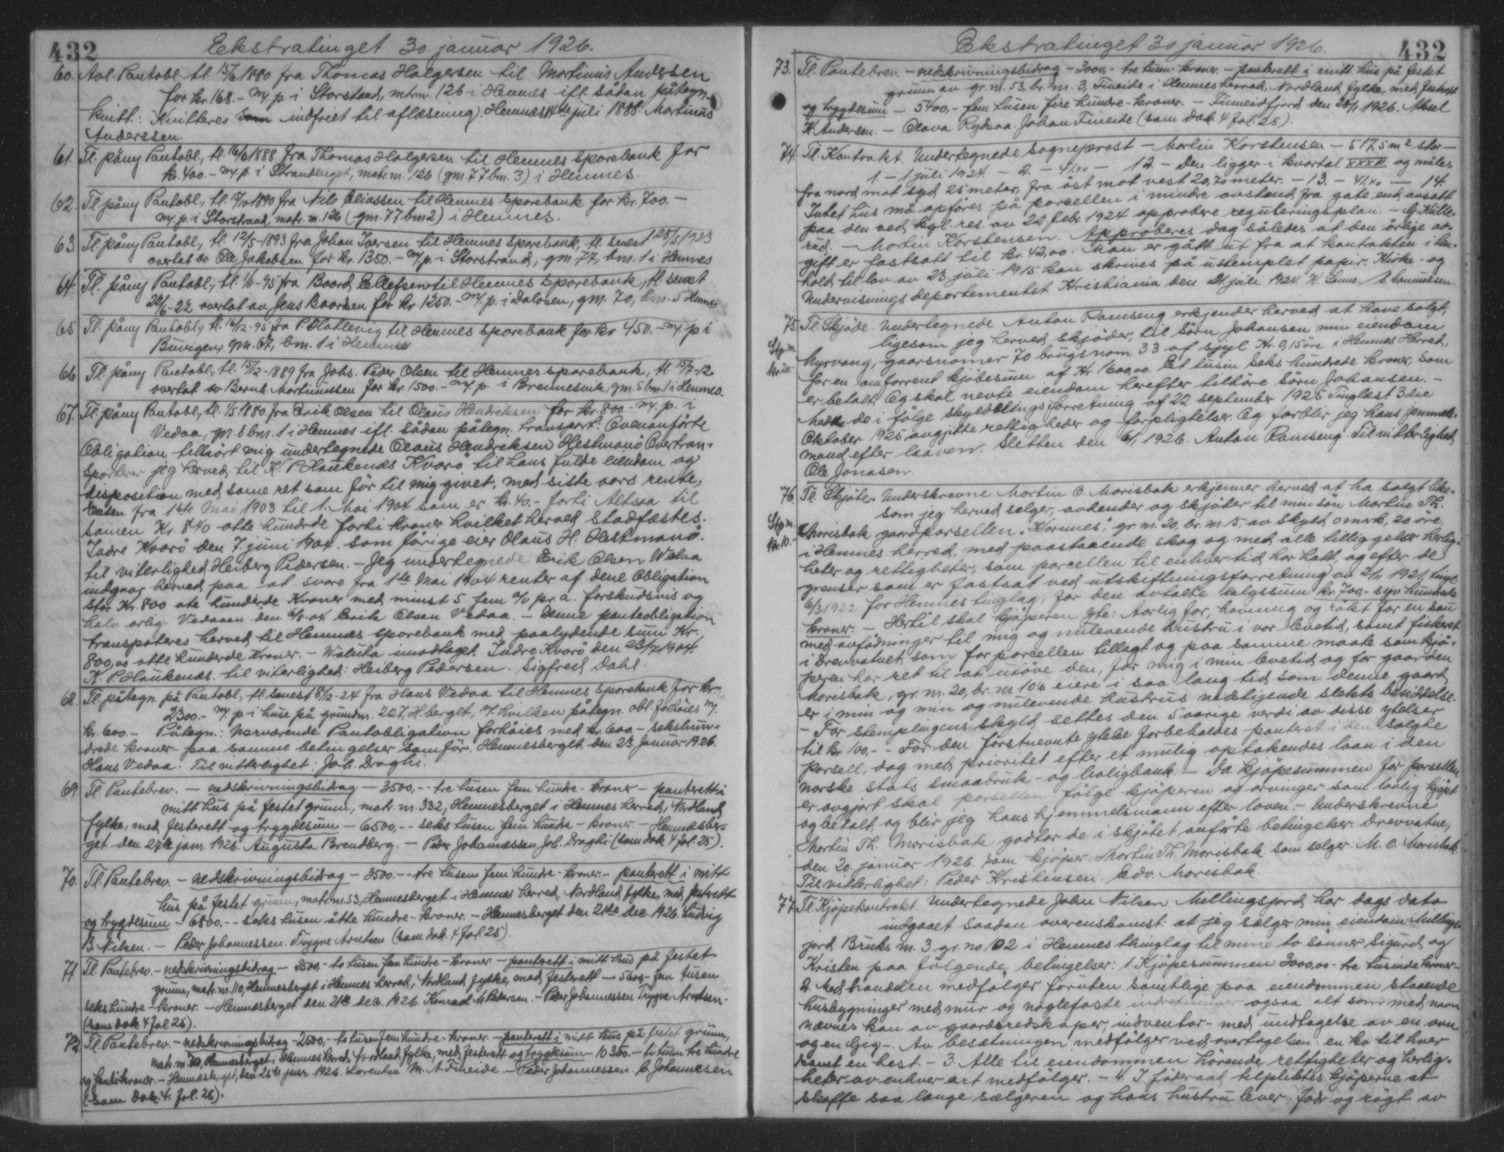 432 Ekstratinget 30. januar 1926.
60. Avl. Pantobl. tl. 15/6 1880 fra Thomas Holgersen til Mortinus Andersen
for kr 168.- m/ p i Storstrand, mtrn. 126 i Hemnes ifl. sådan påtegn.
kvitt: Kvitteres som indfriet til aflæsning. Hemnes juli 1888. Mortinus
Anderssen.
61. Tl. påny Pantobl, tl. 16/6 1888 fra Thomas Holgersen til Hemnes Sparebank for
kr. 400.- m/ p. i Strandenget, matr.nr. 126 (gnr 77 bnr. 3) i Hemnes.
62. Tl. påny Pantobl, tl. 1890 fra Nils Eliassen til Hemnes Sparebank for kr. 700.-
m/ p. i Storstrand, matr. nr. 126 (gnr. 77 bnr 2) i Hemnes.
63. Tl. påny Pantobl, tl. 12/5-1893 fra Johan Iversen til Hemnes Sparebank, tl. senest 1923
overtat av Ole Jakobsen for kr. 1350.- m/ p. i Storstrand, gnr. 77, bnr. 1 i Hemnes
64. Tl. påny Pantobl, tl. -95 fra Baard Ellefsen til Hemnes Sparebank, tl. senest
-22 overtat av Jens Baardsen for kr 1250.- m/ p i Dalosen, gnr. 70, bnr.-5 Hemnes
65. Tl. påny Pantobl, tl. 16/12-95 fra P. Hatlevig til Hemnes Sparebank for kr 450.- m/ p i
Buvigen, gnr. 67, bnr. 1 i Hemnes
66. Tl. påny Pantobl, tl. 15/2-1889 fra Johs. Peder Olsen til Hemnes Sparebank, tl. -12
overtat av Bernt Mortinussen for kr 1500.- m/ p. i Brennesvik, gnr. 5 bnr. 1 i Hemnes.
67. Tl. påny Pantobl, tl. 1/5 1880 fra Erik Olsen til Olaus Hendriksen for kr. 800.- m/ p. i
Vedaa, gnr. 8 bnr. 1 i Hemnes ifl. sådan påtegn. transport: Ovenanförte
Obligation tilhört mig undertegnede Olaus Hendriksen Hestmanö Overtran-
sporterer jeg herved til K. P. Haukenæs Kvarö til hans fulde eiendom og
disposition med same ret som för til mig givet, med siste aars rente,
renten fra 1ste Mai 1903 til 1. Mai 1904 som er kr. 40.- forti Altsaa til
samen kr. 840 otte hundrede forti kroner hvilket herved stadfæstes.
Indre Kvarö den 7. juni 1904. som forige eier Olaus H. Hestmanö.
til viterlighed Heiberg Pedersen. - Jeg undertegnede Erik Olsen Vedaa
indgaar herved paa at svare fra 1ste Mai 1904 renter af dene Obligation
stor kr. 800 ote hunderde Kroner med minst 5 fem % pr a. forskudsvis og
halv arlig. Vedaaen den Erik Olsen Vedaa. - Denne panteobligation
transporteres herved til Hemnes Sparebank med paalydende sum kr.
800,00 otte hunderde kroner. - Valuta imodtaget. Indre Kvarö den 1904
K. P. Haukenæs. til viterlighed: Heiberg Pedersen. Sigfred Dahl.
68. Tl påtegn. på Pantobl, tl. senest 8/2-24 fra Hans Vedaa til Hemnes Sparebank for kr.
2300.- m/ p i huse på grundnr. 227, H.berget, ifl. hvilken påtegn. obl. forhöies m/.
kr. 600.- Påtegn: Nærværende Pantobligation forhöies med kr 600.- sekshun-
drede kroner paa samme betingelser som för. Hemnesberglt den 23. Januar 1926.
Hans Vedaa. Til vitterlighet: Joh. Draghi.
69. Tl. Pantebrev. - nedskrivningsbidrag - 3500,- tre tusen fem hundre - kroner - panterett i
mitt hus på festet grunn, matr. nr. 332, Hemnesberget i Hemnes herred, Nordland
fylke, med festerett og trygdesum - 6500,- - seks tusen fem hundre - kroner. - Hemnesber-
get den 27de jan. 1926. Augusta Brendberg. - Peder Johannessen Joh. Draghi (sam dok 4 fol. 25).
70. Tl. Pantebrev. - nedskrivningsbidrag - 3500.- tre tusen fem hundre - kroner. - panterett i mitt
hus på festet grunn, matr. nr. 53, Hemnesberget i Hemnes herred, Nordland fylke, med festerett
og trygdesum - 6800.- - seks tusen åtte hundre - kroner - Hemnesberget den 21de dec. 1926. Ludvig
B. Nilsen. - Peder Johannessen. Trygve Arntsen (sam dok. 4 fol. 25)
71. Tl. Pantebrev. - nedskrivningsbidrag - 2500,- to tusen fem hundre - kroner - panterett i mitt hus på festet
grunn, matr. nr. 110, Hemnesberget i Hemnes herred, Nordland fylke, med festerett - 5600.- fem tusen
seks hundre - kroner. - Hemnesberget den 21de dec. 1926. Konrad Pedersen. - Peder Johannessen Trygve Arntsen.
(sam dok 4 fol. 25).
72. Tl. Pantebrev. - nedskrivningsbidrag - 2500,- to tusen fem hundre - kroner. - panterett i mitt hus på festet grunn,
matr. nr. Hemnesberget i Hemnes herred, Nordland fylke, med festerett og trygdesum - 10 300.- ti tusen tre hundre
og kroner. - Hemnesberget, den 25de janr. 1926. Lorentse M. A. Fineide - Peder Johannessen. C. Johannesen
(sam dok. 4. fol. 25).
Ekstratinget 30. januar 1926. 432
73. Tl. Pantebrev. - nedskrivningsbidrag - 3000,- tre tusen - kroner. - panterett i mitt hus på festet
grunn av gr. nr. 53. br. nr. 3, Fineide i Hemnes herred, Nordland fylke, med festerett
og trygdesum - 5400.- fem tusen fire hundre - kroner. - Finneidfjord den 1926. Aksel
H. Andersen. - Olava Rydsaa Johan Fineide (sam dok 4 fol 25).
74. Tl. Kontrakt. Undertegnede sogneprest - Morten Korstensen - 517,5 m² stor -
1. - 1 juli 1924 - 2. - 41,40 - 12 - Den ligger i kvartal XXXII og måles
fra nord mot syd 25 meter, fra öst mot vest 20,70 meter. - 13. - 41,40 - 14.
Intet hus må opföres på parsellen i mindre avstand fra gate enn avsatt
paa den ved kgl. res. av 22 febr 1924 approbre reguleringsplan. - G. Kulle-
rud. - Morten Korstensen. Approberes dog således at den årlige av-
gift er fastsatt til kr. 42,00. Man er gått ut fra at kontrakten i hen-
hold til lov av 23 juli 1915 kan skrives på ustemplet papir. Kirke- og
Undervisningsdepartementet Kristiania den 21 juli 1924. K. Sunne / N. Arnuelsen.
75. Tl. Skjöde. Undertegnede Anton Ramseng erkjender herved at have solgt,
Stp.m. ligesom jeg herved skjöder, til Sörn Johansen min eiendom
kr. 20.- Myrvang, gaarsnomer 70 brugsnom 33 af skyl Kr. 0,15 öre i Hemnes Herred,
for en omforrent kjöbesum af Kr. 1600,00. Et tusen Seks hundrede kroner, som
er betalt. Og skal nevte eiendom herefter tilhöre Sörn Johansen. -
Med de i fölge skyldelingsforretning af 22 september 1925 tinglast 3die
Oktober 1925 avgitte rettigheder og forpligtelser Og forblir jeg hans jemmels-
mand efter laaven. Sletten den 6/1 1926. Anton Ramseng. Til vitterlighed,
Ole Jonasen.
76. Tl. Skjöte. Underskrevne Martin O. Morisbak erkjenner herved at ha solgt like-
som jeg herved selger, avhender og skjöter til min sön Martin Th.
Stp.m. Morisbak gaardparsellen "Kornnes" gr. nr. 20, br. nr. 15, av skyld 0 mark, 20 öre,
kr. 10.- i Hemnes herred, med paastaaende skog og med alle tilliggelser herlig-
heter og rettigheter, som parcellen til enhver tid har hatt og efter de
grenser som er fastsat ved utskiftningsforretning av 2/11 1921, tingl.
6/3 1922 for Hemnes tinglag, for den avtalte salgssum kr. 700.- syv hundrede
kroner. - Hertil skal kjöperen yte: Aarlig for, havning og rökt for en sau
med avfödninger til mig og nulevende hustru i vor levetid, samt fiskeret
i Drevvatnet, som for parcellen tillagt og paa samme maate som kjö-
peren har ret til at utöve den, for mig i min levetid og for gaarden
Morisbak, gr. nr. 20, br. nr. 10/6 eiere i saa lang tid som denne gaard
er i min og min og nulevende hustrus nedstigende slekts besiddelse.
- For stemplingens skyld settes den 5 aarige verdi av disse ytelser
til kr. 100,- For den förstnevnte ytelse forbeholdes pantret i den solgte
parsell, dog med prioritet efter et mulig optakendes laan i den
norske stats smaabruk- og boligbank. - Da kjöpesummen for parsellen
er avgjort skal parsellen fölge kjöperen og arvinger som lovlig kjöpt
og betalt og blir jeg hans hjemmelsmann efter loven. - Underskrevne
Martin Th. Morisbak godtar de i skjötet anförte betingelser. Drevvatne,
den 20. januar 1926. Som kjöper Martin Th. Morisbak Som selger M. O. Morisbak.
Til vitterlighet: Peder Kristensen. Edv. Moresbak.
77. Tl. Kjöpekontrakt. Undertegnede John Nilsen Millingsjord har dags dato
indgaaet saadan overenskomst: at jeg sælger min eiendom Millings-
jord Bruks nr. 3 gr. no. 102 i Hemnes thinglag til mine to sönner Sigurd og
Kristen paa fölgende betingelser: 1. Kjöpesummen 3000,00. tre tusinde kroner.-
2. Med handelen medfölger foruten samtlige paa eiendommen staaende
husbygninger med mur og naglefaste indretninger ogsaa alt som med navn
nævnes kan av gaardsredskaper, indventar - med undtagelse av en ovn
og en Gig. - Av besætningen medfölger ved overtagelsen: en ko til hver
samt en hest. - 3. Alle til eiendommen hörende rettigheter og herlig-
heter av enhver art medfölger. - 4. I föderaad tilpliktes kjöperne at
skaffe saa længe sælgeren og hans hustru lever. for og rögt av